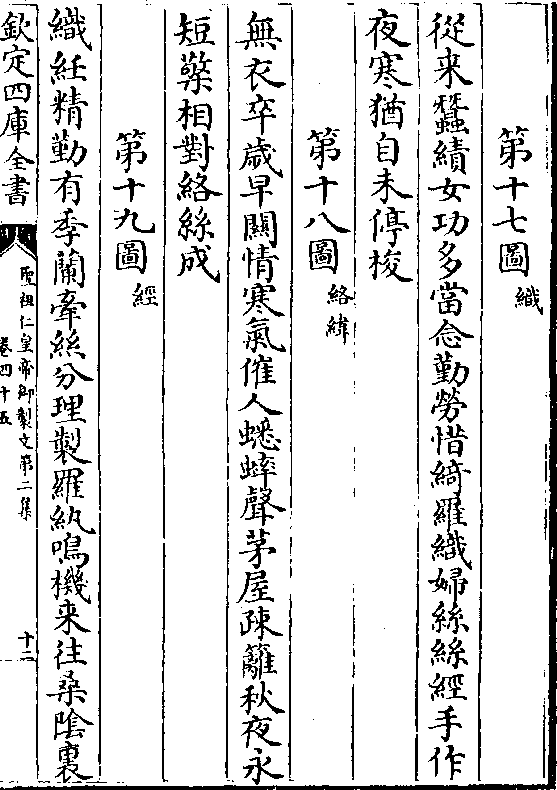 第十七圖織
從来蠶績女功多當念勤勞惜綺羅織婦絲絲經手作
夜寒猶自未停梭
第十八圖絡緯
無衣卒歳早關情寒氣催人蟋蟀聲茅屋疎籬秋夜永
短檠相對絡絲成
第十九圖經
織紝精勤有季蘭牽絲分理製羅紈鳴機来往桑陰裏
欽定四庫全書
聖祖仁皇帝御製文第二集
卷四十五
十二